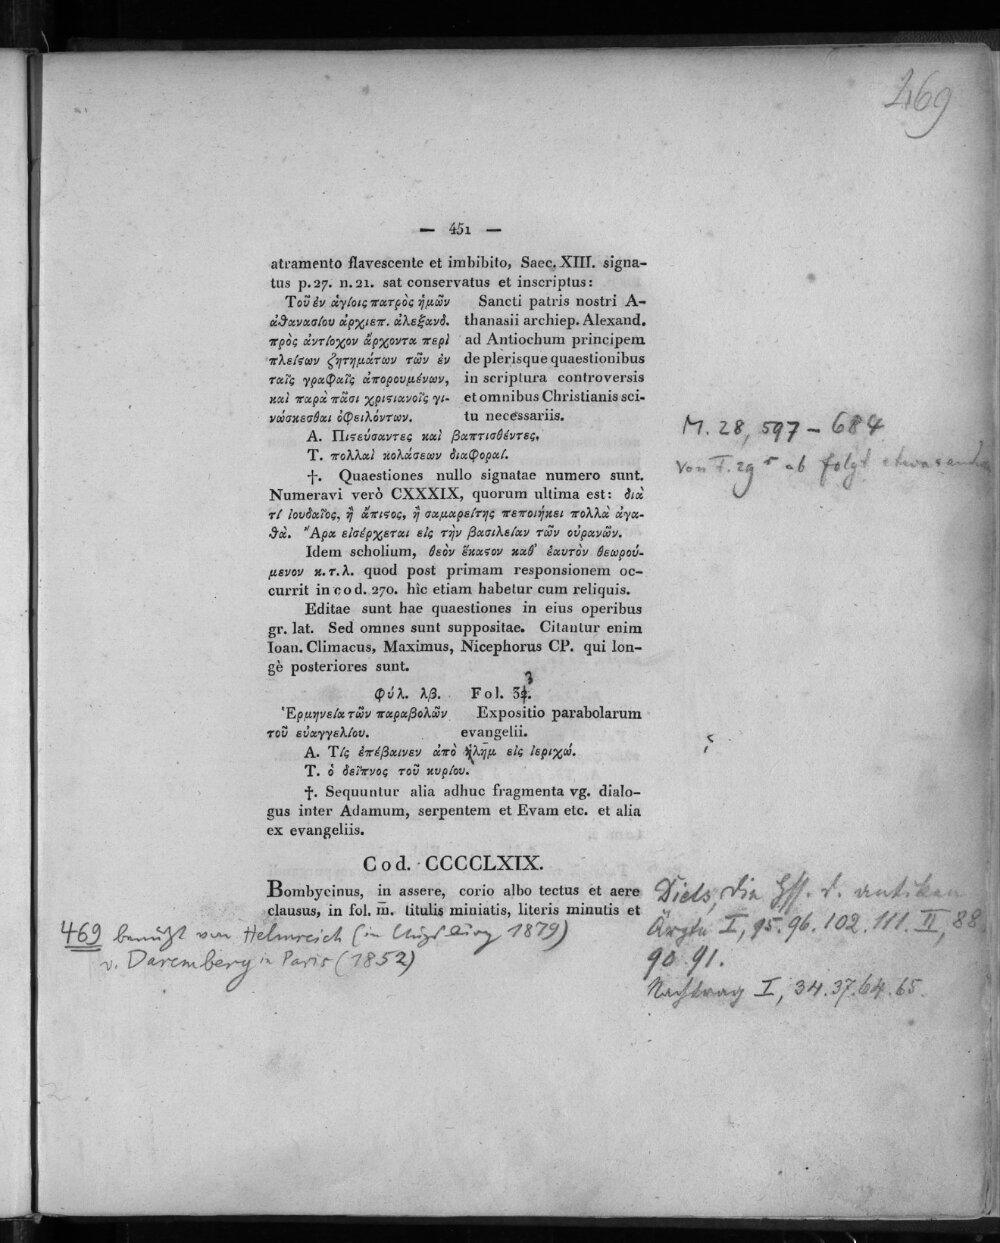 469
— 451 —
atramento flavescente et imbibito, Saec. XIII. signa-
tus p. 27. n. 21. sat conservatus et inscriptus:
Τοῦ ἐν ἁγίοις πατρὸς ἡμῶν Sancti patris nostri A-
ἀθανασίου ἀρχιεπ. ἀλεξανδ. thanasii archiep. Alexand.
πρὸς ἀντίοχον ἄρχοντα περὶ ad Antiochum principem
πλείϛων ζητημάτων τῶν ἐν de plerisque quaestionibus
ταῖς γραφαῖς ἀπορουμένων, in scriptura controversis
καὶ παρὰ πᾶσι χριϛιανοῖς γι- et omnibus Christianis sci-
νώσκεσθαι ὀφειλόντων. tu necessariis.
Α. Πιϛεύσαντες καὶ βαπτισθέντες.
Τ. πολλαὶ κολάσεων διαφοραί.
†. Quaestiones nullo signatae numero sunt.
Numeravi verò CXXXIX, quorum ultima est: διὰ
τί ἰουδαῖος, ἢ ἄπιϛος, ἢ σαμαρείτης πεποιήκει πολλὰ ἀγα-
θὰ. Ἆρα εἰσέρχεται εἰς τὴν βασιλείαν τῶν οὐρανῶν.
Idem scholium, θεὸν ἕκαϛον καθ᾽ ἑαυτὸν θεωρού-
μενον κ.τ.λ. quod post primam responsionem oc-
currit in cod. 270. hîc etiam habetur cum reliquis.
Editae sunt hae quaestiones in eius operibus
gr. lat. Sed omnes sunt suppositae. Citantur enim
Ioan. Climacus, Maximus, Nicephorus CP. qui lon-
gè posteriores sunt.
M. 28, 597 – 684
von F. 29 r ab folgt etwas
φύλ. λβ. Fol. 32.
3
Ἑρμηνεία τῶν παραβολῶν Expositio parabolarum
τοῦ εὐαγγελίου. evangelii.
Α. Τίς ἐπέβαινεν ἀπὸ ἱλη̄μ εἰς ἱεριχώ.
Τ. ὁ δεῖπνος τοῦ κυρίου.
†. Sequuntur alia adhuc fragmenta vg. dialo-
gus inter Adamum, serpentem et Evam etc. et alia
ex evangeliis.
Cod. CCCCLXIX.
Bombycinus, in assere, corio albo tectus et aere
clausus, in fol. m̄. titulis miniatis, literis minutis et
Diels, die Hff. d. antiken
Ärzte I, 95. 96. 102. 111. II, 88
90. 91.
Nachtrag I, 34. 37. 64. 65.
469 benützt von Helmreich (in Augsburg 1879)
v. Daremberg in Paris (1852)